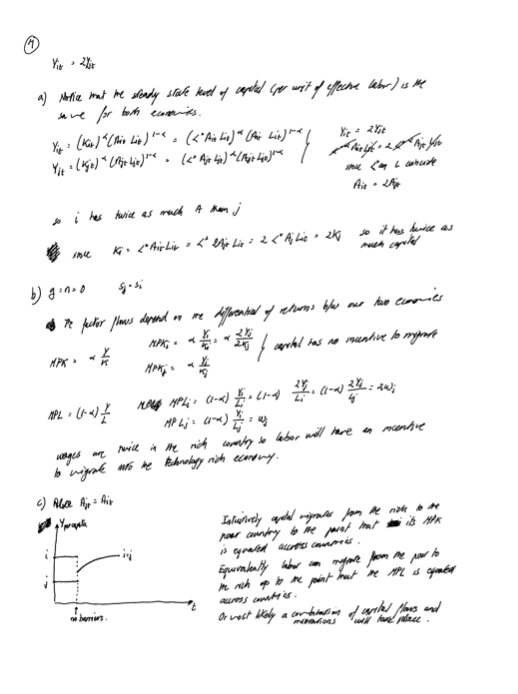 4
Yit = 2Yjt
a) Notice that the steady state level of capital (per unit of effective labor) is the
same for both economies.
Yit = (Kit)^α (Ait Lit)^1-α = (k* Ait Lit)^α (Ait Lit)^1-α
Yjt = (Kjt)^α (Ajt Ljt)^1-α = (k* Ajt Ljt)^α (Ajt Ljt)^1-α
Yit = 2Yjt
since k* and L coincide
Ait = 2Ajt
so i has twice as much A than j
since Ki = k* Ait Lit = k* 2Ajt Lit = 2 k* Aj Lit = 2Kj so it has twice as
much capital
b) g=n=0 sj=si
The factor flows depend on the differential of returns b/w our two economies
MPK = α Y/K
MPKi = α Yi/Ki = α 2Yj/2Kj
MPKj = α Yj/Kj
} capital has no incentive to migrate
MPL = (1-α) Y/L
MPLi = (1-α) Yi/Li = (1-α) 2Yj/Li = (1-α) 2Yj/Lj = 2wj
MPLj = (1-α) Yj/Lj = wj
wages are twice in the rich country so labor will have an incentive
to migrate into the technology rich economy.
c) Ajt = Ait
Y per capita
i
j
i=j
t
no barriers.
Intuitively capital migrates from the rich to the
poor country to the point that its MPK
is equated accross countries.
Equivalently labor can migrate from the poor to
the rich up to the point that the MPL is equated
across countries.
Or most likely a combination of capital flows and
migrations will take place.